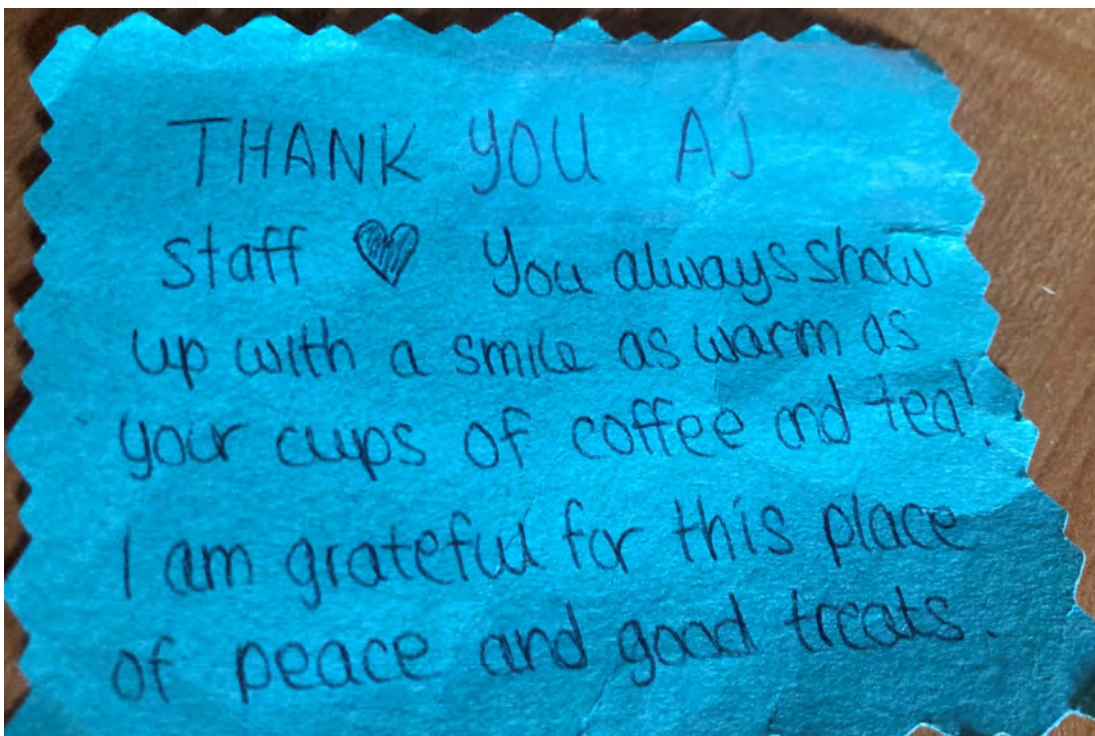 THANK YOU AJ
staff ♥ You always show
up with a smile as warm as
your cups of coffee and tea!
I am grateful for this place
of peace and good treats.